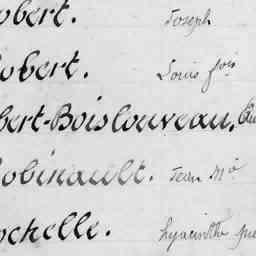 obert. Joseph
obert. Louis fois
bert-Boislouveau.
obinault. Jean Mie
ochelle. hyacinthe